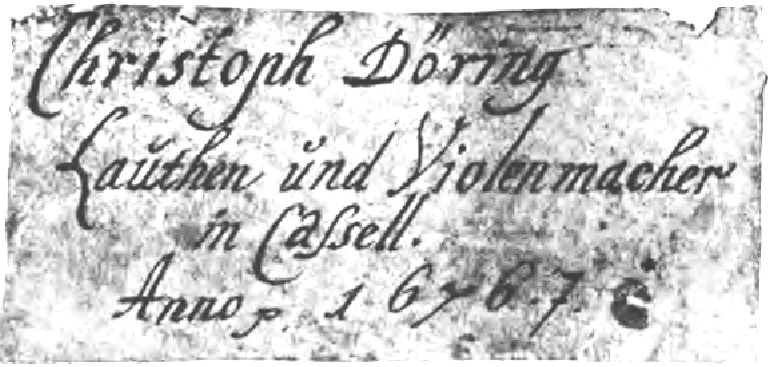 Christoph Döring
Lauthen und Violenmacher
in Cassell.
Anno